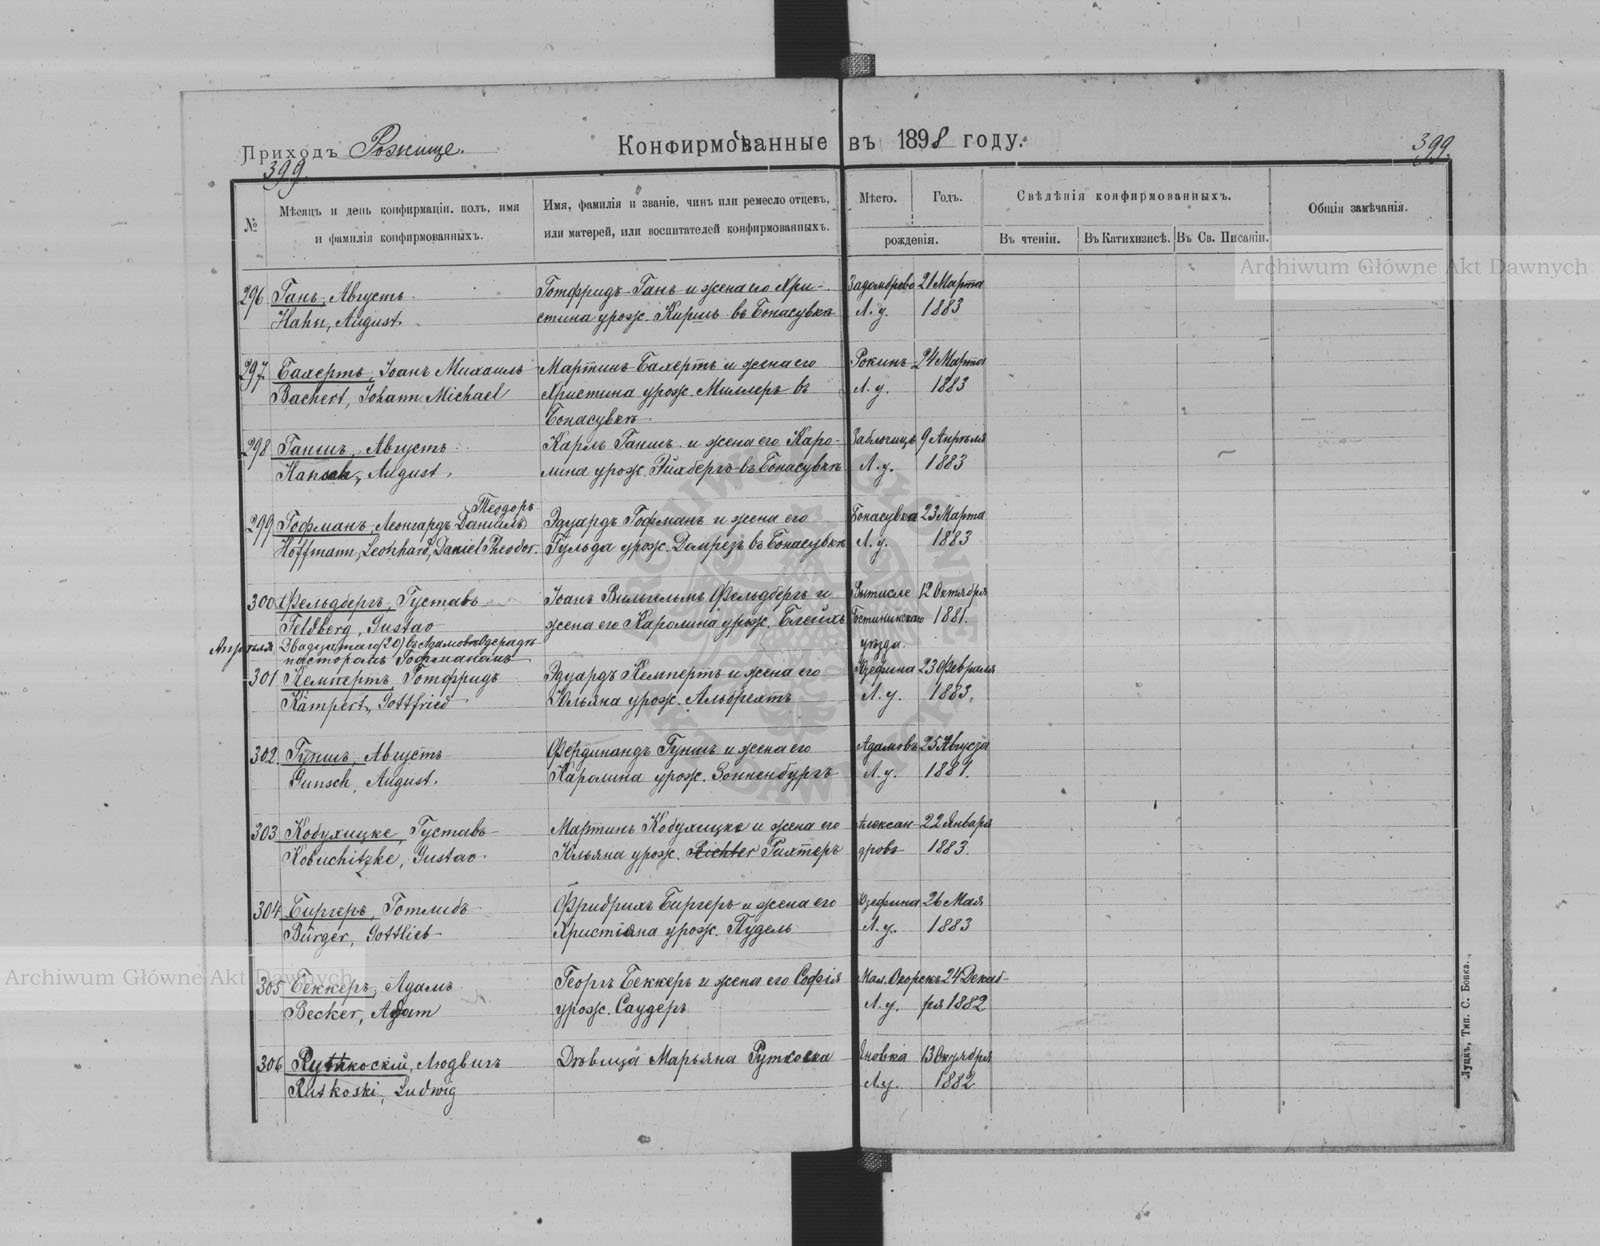 Приходъ Рожище.
Конфирмованные въ 1898 году.
399.
399.
№
Мѣсяцъ и день конфирмаціи, полъ, имя
и фамилія конфирмованныхъ.
Имя, фамилія и званіе, чинъ или ремесло отцевъ,
или матерей, или воспитателей конфирмованныхъ.
Мѣсто.
Годъ.
рожденія.
Свѣдѣнія конфирмованныхъ.
Въ чтеніи.
Въ Катихизисѣ.
Въ Св. Писаніи.
Общія замѣчанія.
296 Ганъ, Августъ
Hahn, August
Готфридъ Ганъ и жена его Хри-
стина урож. Киршъ въ Бонасувкѣ
21 Марта
Л. у. 1883
297 Бахертъ, Іоанъ Михаилъ
Bachert, Johann Michael
Мартинъ Бахертъ и жена его
Христина урож. Миллеръ въ
Бонасувкѣ
Рокинь 24 Марта
Л. у. 1883
298 Ганшъ, Августъ
Hansch, August
Карлъ Ганшъ и жена его Каро-
лина урож. Рихбергъ въ Бонасувкѣ
9 Апрѣля
Л. у. 1883
Теодоръ
299 Гофманъ, Леонгардъ Даніилъ
Hoffmann, Leonhard, Daniel Theodor
Эдуардъ Гофманъ и жена его
Гульда урож. Домрезъ въ Бонасувкѣ
Бонасувка 23 Марта
Л. у. 1883
300 Фельдбергъ, Густавъ
Feldberg, Gustav
Іоанъ Вильгельмъ Фельдбергъ и
жена его Каролина урож. Блейхъ
12 Октября
Гостининскаго 1881.
уѣзда.
Апрѣля Двадцатаго (20) въ
пасторомъ Гофманомъ
301 Кемпертъ Готфридъ
Kämpert, Gottfried
Эдуардъ Кемпертъ и жена его
Юльяна урож. Альбрехтъ
Юзефина 23 Февраля
Л. у. 1883.
302 Гуншъ, Августъ
Gunsch, August.
Фердинандъ Гуншъ и жена его
Каролина урож. Зонненбургъ
Адамовъ 25 Августа
Л. у. 1881.
303 Кобухицке, Густавъ
Kobuchitzke, Gustav.
Мартинъ Кобухицке и жена его
Юльяна урож. Richter Рихтеръ
Алексан- 22 Января
дровъ 1883.
304 Биргеръ, Готлибъ
Bürger, Gottlieb
Фридрихъ Биргеръ и жена его
Христіяна урож. Пудель
Юзефина 26 Мая
Л. у. 1883
305 Беккеръ, Адамъ
Becker, Adam
Георгъ Беккеръ и жена его Софія
урож. Саудеръ
24 Декаб-
Л. у. ря 1882
306 Руткоскій, Людвигъ
Rutkoski, Ludwig
Дѣвица Марьяна Рутковска
Яновка 13 Октября
Л. у. 1882
Луцкъ, Тип. С. Бонка.
Archiwum Główne Akt Dawnych
Archiwum Główne Akt Dawnych
ARCHIWUM GŁÓWNE AKT DAWNYCH